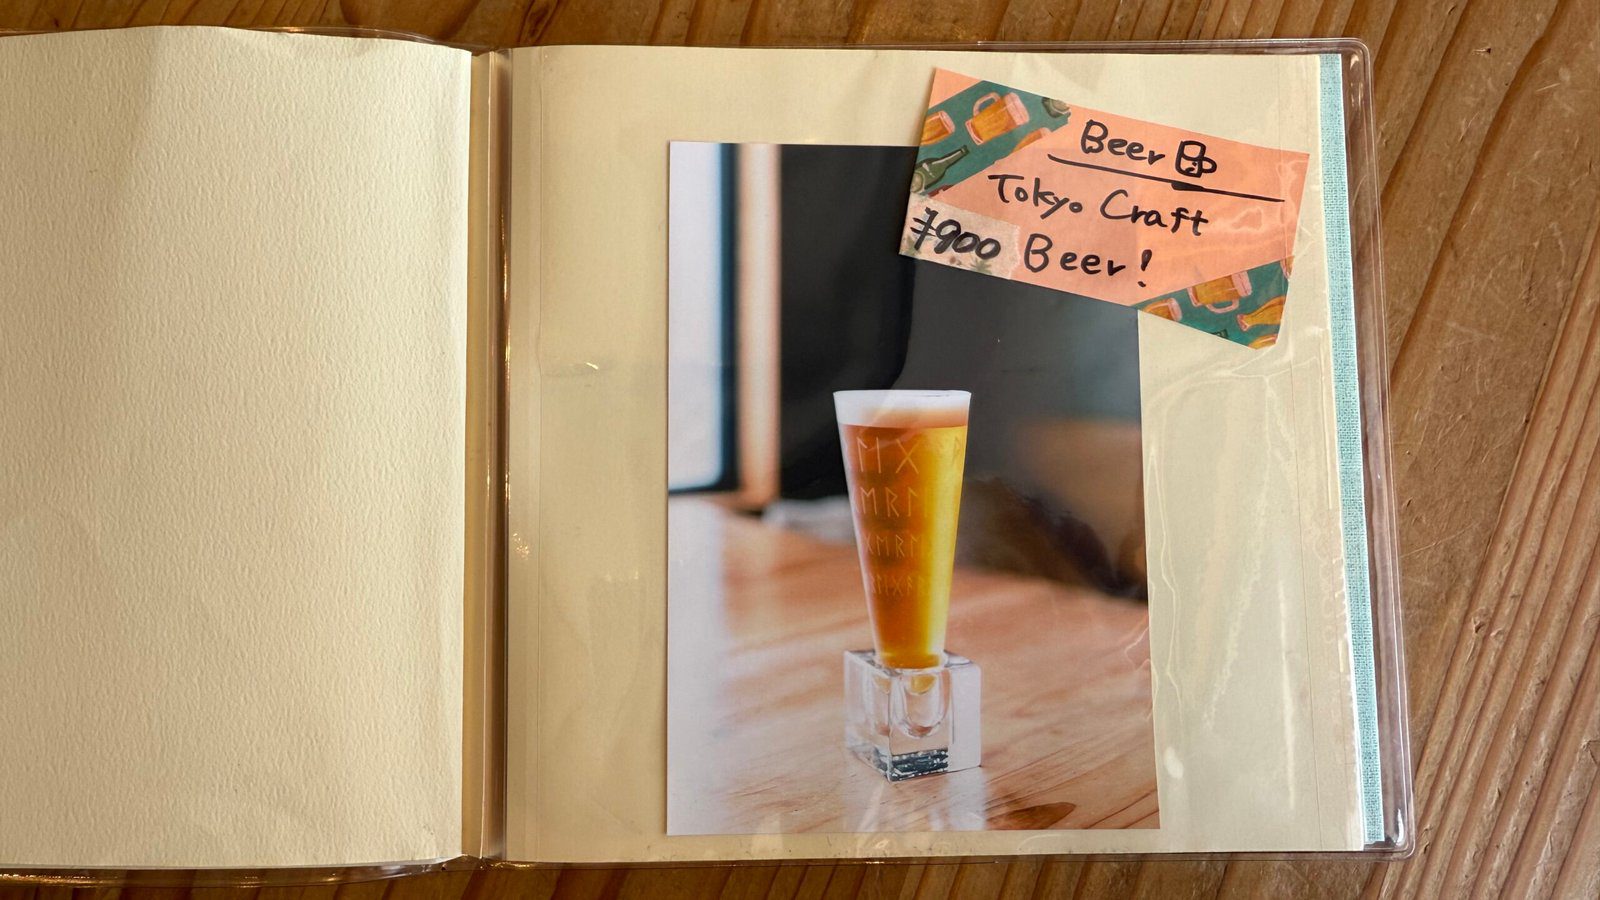 Beer
Tokyo Craft
¥900 Beer!